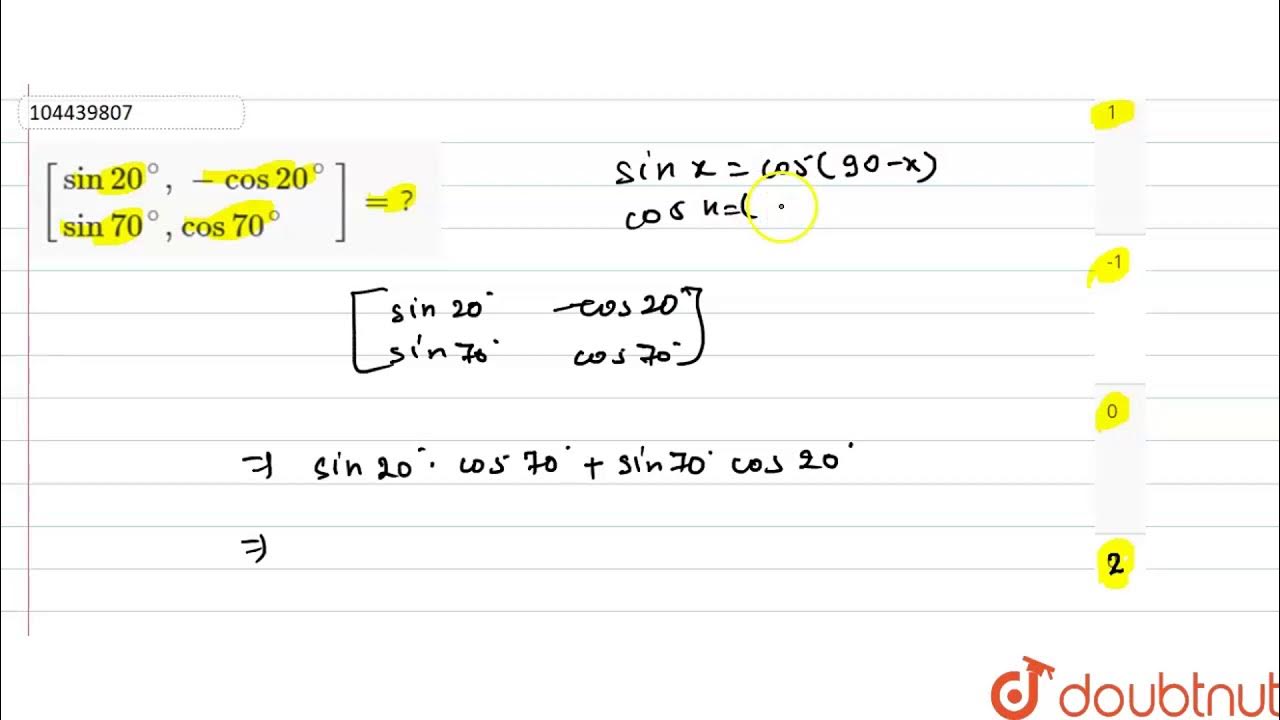 104439807
[ sin 20°, − cos 20° ] = ?
[ sin 70°, cos 70° ]
sin x = cos(90-x)
cos x=(
[ sin 20° -cos 20° ]
[ sin 70° cos 70° ]
⇒ sin 20°. cos 70° + sin 70° cos 20°
⇒
1
-1
0
2
doubtnut